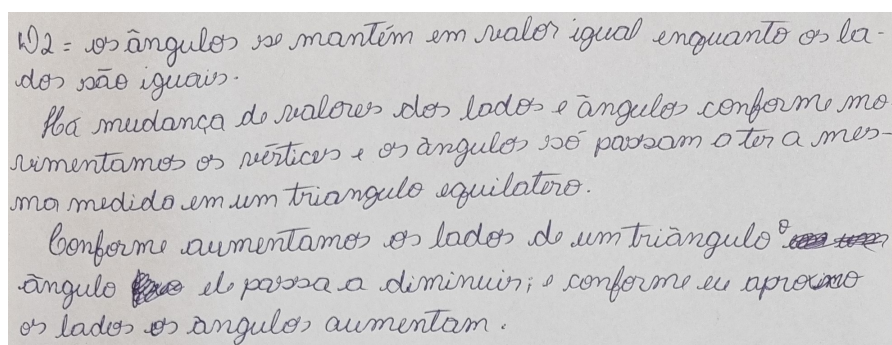 W2 = os ângulos se mantém em valor igual enquanto os la-
dos são iguais.
Há mudança de valores dos lados e ângulos conforme mo
vimentamos os vértices e os ângulos só passam a ter a mes-
ma medida em um triangulo equilatero.
Conforme aumentamos os lados de um triângulo o
ângulo ele passa a diminuir; e conforme eu aproximo
os lados os angulos aumentam.